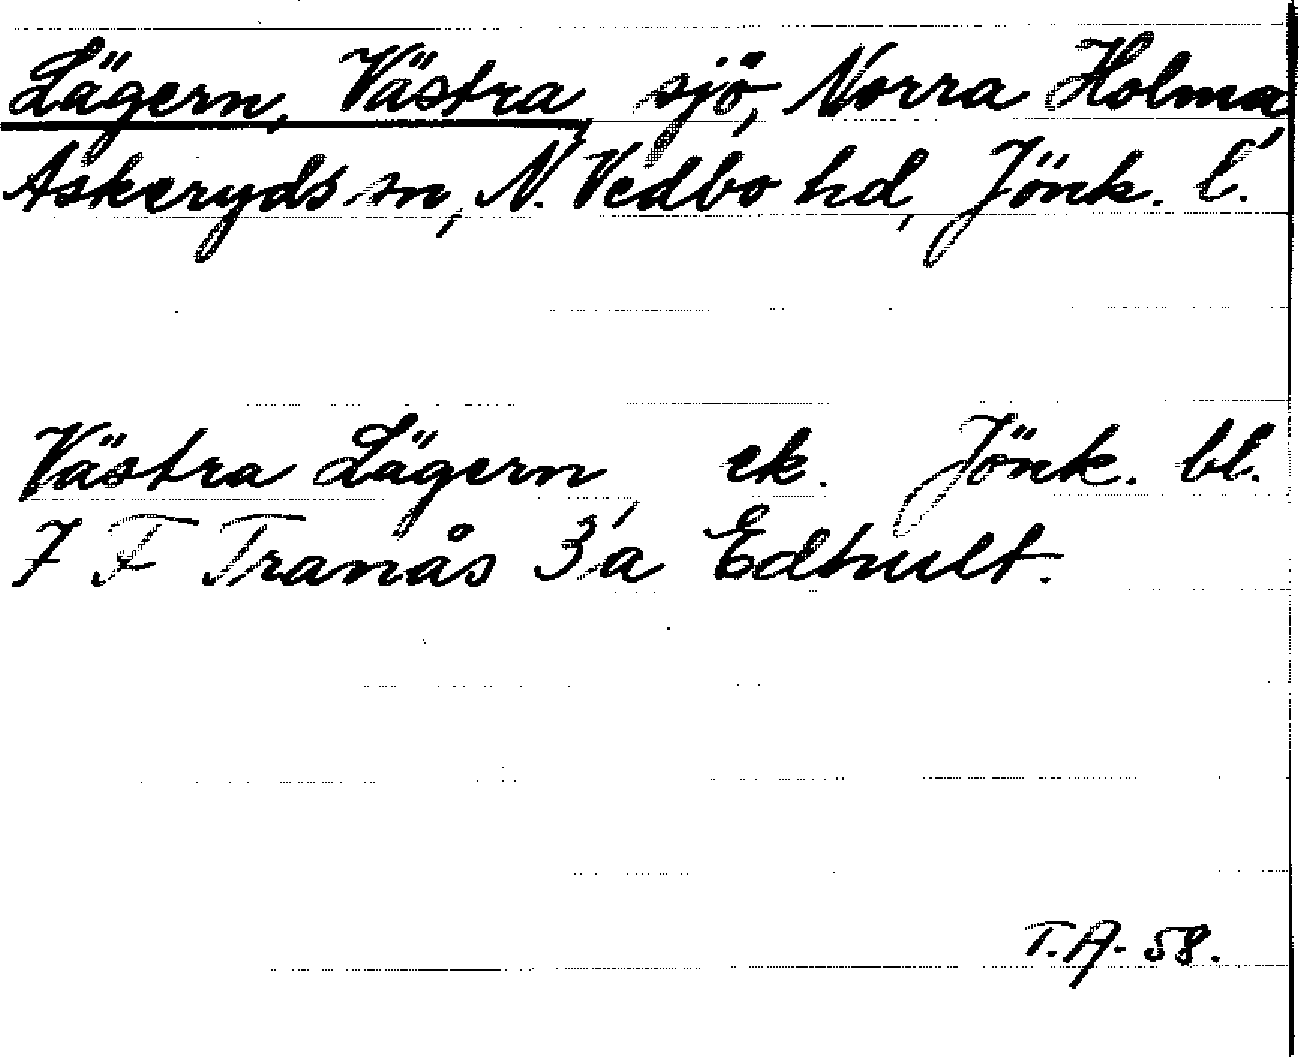 Lägern, Västra, sjö, Norra Holma,
Askeryds sn, N. Vedbo hd, Jönk. l.
Västra Lägern, ek. Jönk. bl.
7 F Tranås 3 a Edhult.
T.A. 58.